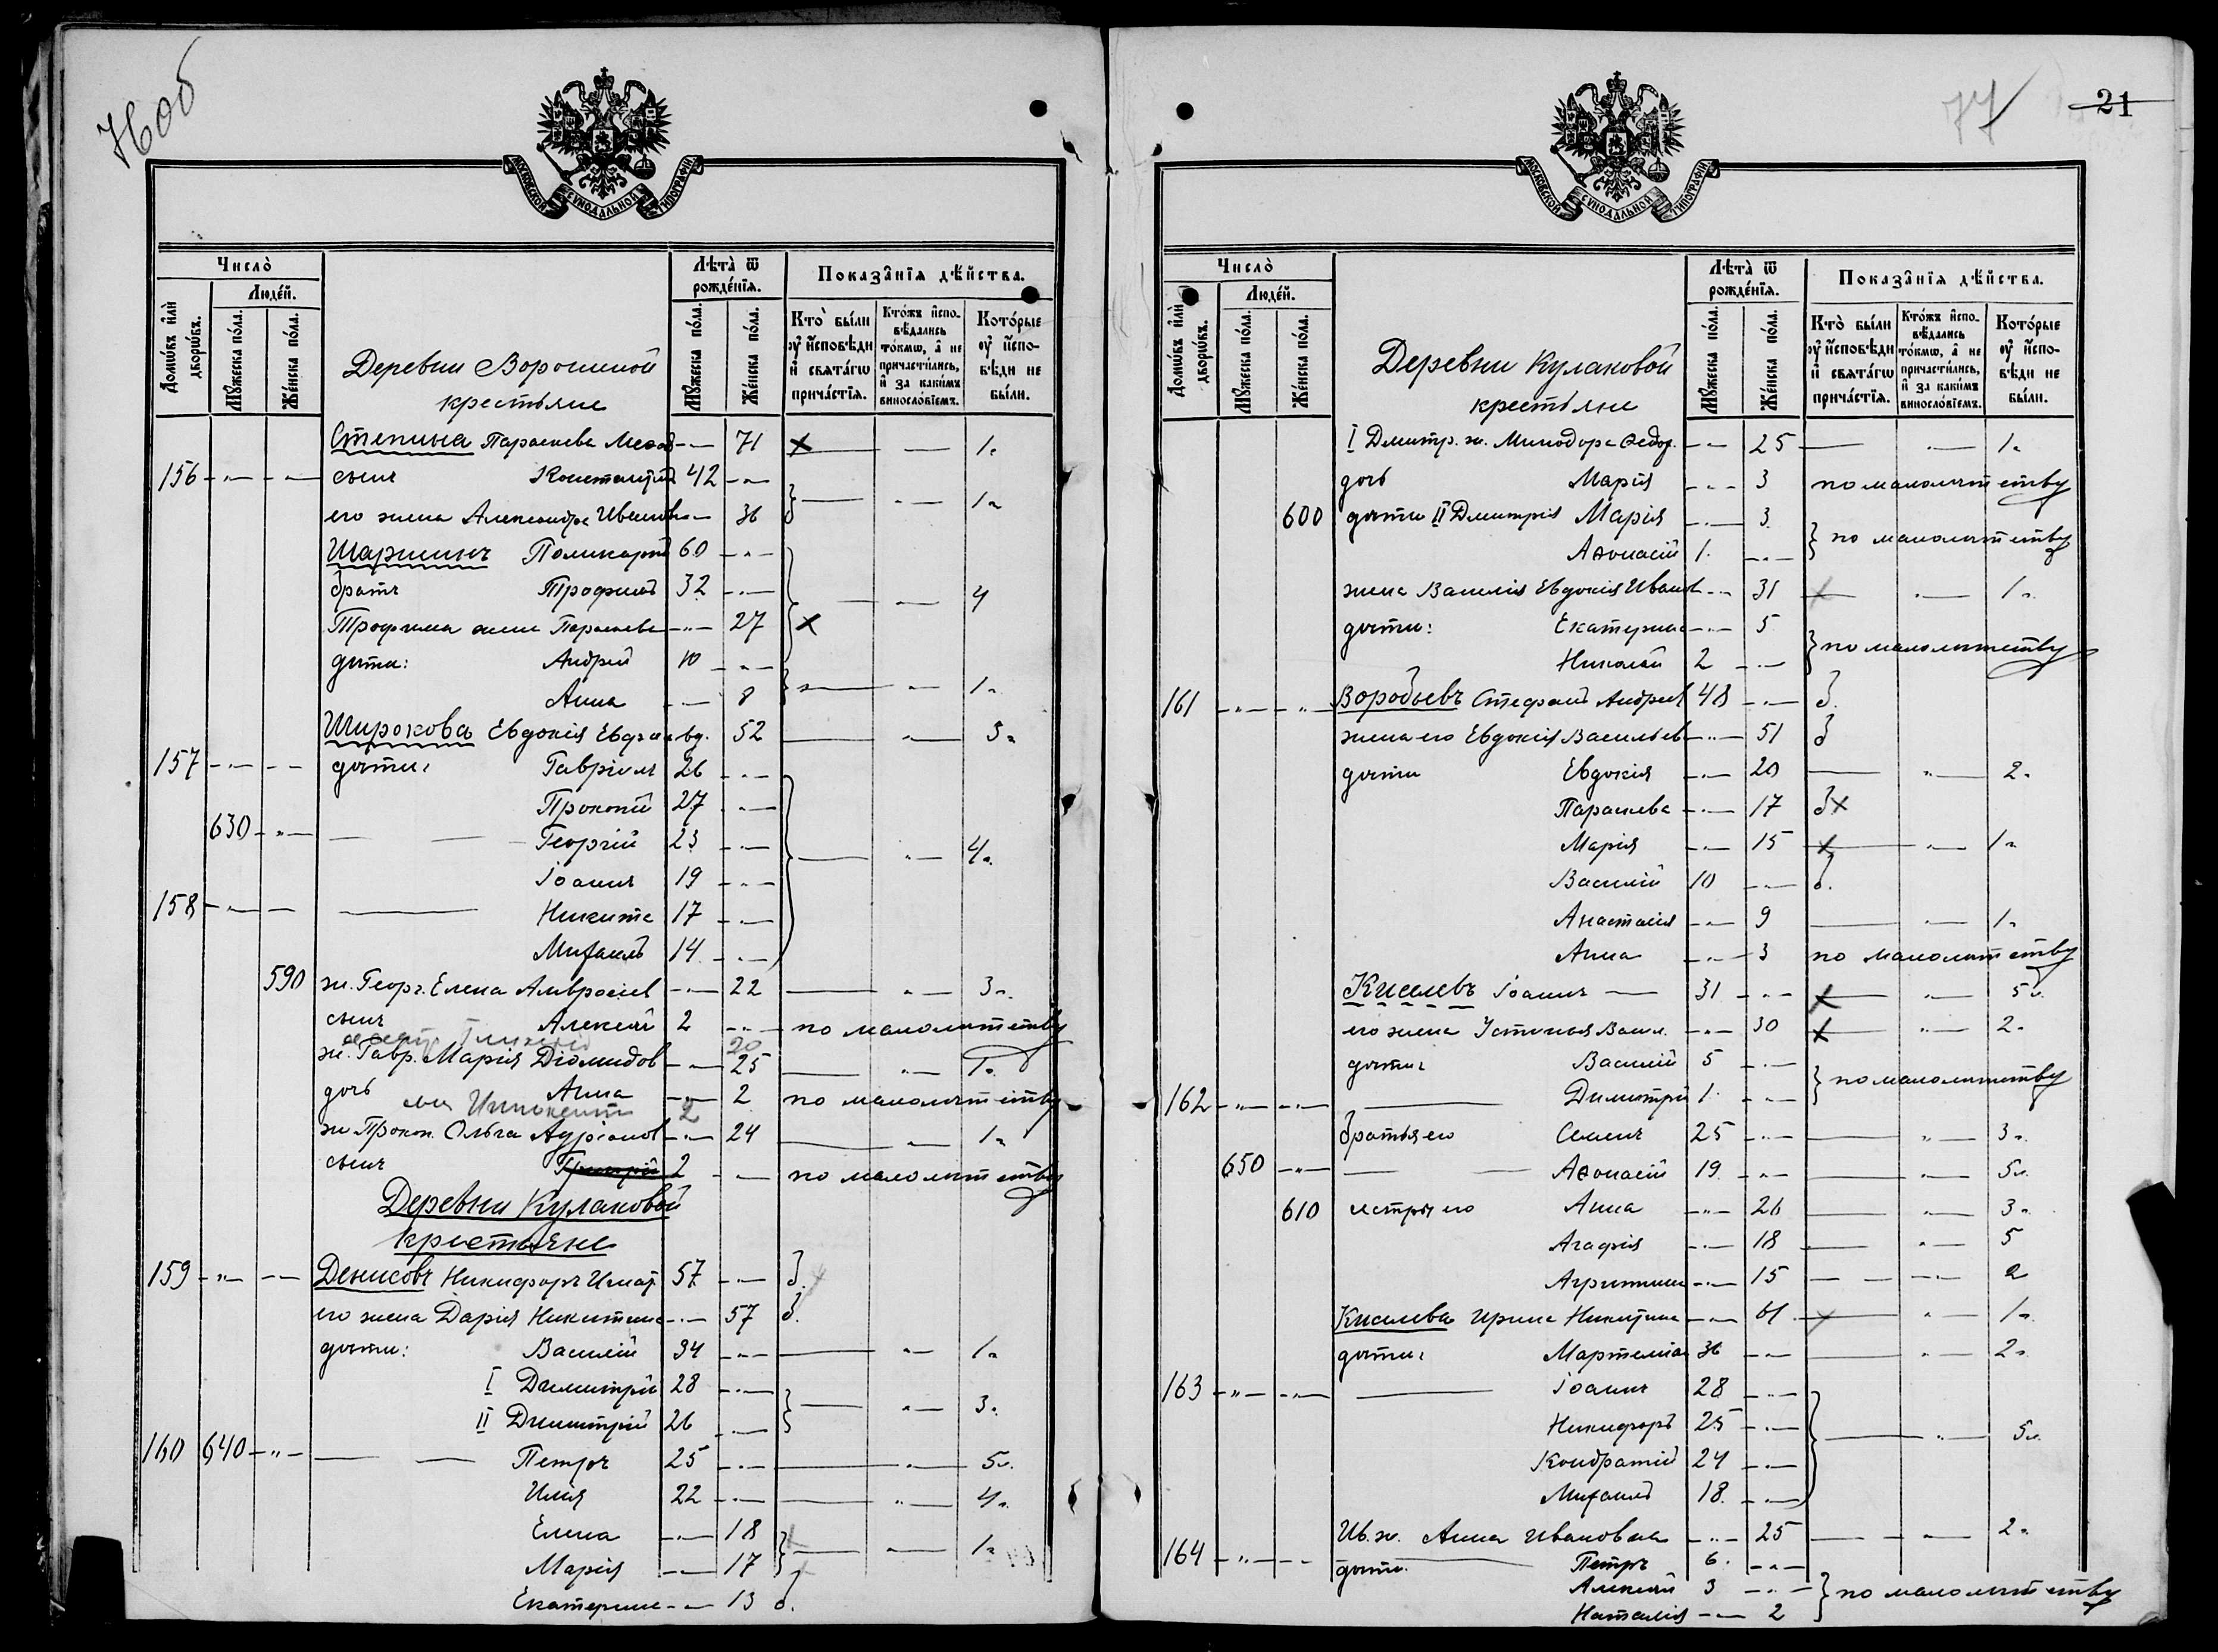 76 об
МОСКОВСКОЙ СѴНОДАЛЬНОЙ ТИПОГРАФІИ
Число̀
Людей.
Домѡвъ илѝ дворѡвъ.
Мꙋжеска по́ла.
Же́нска по́ла.
Лѣта̀ ѿ рожде́нїѧ.
Мꙋжеска по́ла.
Же́нска по́ла.
Показа̑нїѧ дѣ́йства.
Кто̀ бы́ли оу҆ и҆сповѣди и҆ свѧта́гѡ прича́стїѧ.
Кто́жъ и҆сповѣ́дались то́кмѡ, а҆ не причасти́лись, и҆ за каки́мъ винословїемъ.
Кото́рые оу҆ и҆сповѣди не бы́ли.
Деревни Ворониной
крестьяне
Степина Параскева 71 1
156 сынъ Константинъ 42
его жена Александра Иванов 36 1
Шаршинъ Поликарпъ 60
братъ Трофимъ 32 4
Трофима жена Параскева 27
дѣти: Андрей 10
Анна 8 1
Широкова Евдокія вд. 52 3
157 дѣти: Гавріилъ 26
Прокопій 27
630 Георгій 23 4
Іоаннъ 19
158 Никита 17
Михаилъ 14
590 ж. Георг. Елена Амвросіев 22 3
сынъ Алексій 2 по малолѣтству
20
ж. Гавр. Марія Діомидов 25 1
дочь Анна 2 по малолѣтству
сын Иннокентій 2
ж. Прокоп. Ольга Адріанов 24 1
сынъ Григорій 2 по малолѣтству
Деревни Кулаковой
крестьяне
159 Денисовъ Никифоръ Игнат 57 б.
его жена Дарія Никитина 57 б.
дѣти: Василій 34 1
I Димитрій 28
II Димитрій 26 3
160 640 Петръ 25 5
Илія 22 4
Елена 18
Марія 17 1
Екатерина 13 б.
77
21
МОСКОВСКОЙ СѴНОДАЛЬНОЙ ТИПОГРАФІИ
Число̀
Людей.
Домѡвъ илѝ дворѡвъ.
Мꙋжеска по́ла.
Же́нска по́ла.
Лѣта̀ ѿ рожде́нїѧ.
Мꙋжеска по́ла.
Же́нска по́ла.
Показа̑нїѧ дѣ́йства.
Кто̀ бы́ли оу҆ и҆сповѣди и҆ свѧта́гѡ прича́стїѧ.
Кто́жъ и҆сповѣ́дались то́кмѡ, а҆ не причасти́лись, и҆ за каки́мъ винословїемъ.
Кото́рые оу҆ и҆сповѣди не бы́ли.
Деревни Кулаковой
крестьяне
I Дмитр. ж. Минодора Ѳедор. 25 1
дочь Марія 3 по малолѣтству
600 дѣти II Дмитрія Марія 3
Аѳонасій 1 по малолѣтству
жена Василія Евдокія Иванов 31 1
дѣти: Екатерина 5
Николай 2 по малолѣтству
161 Воробьевъ Стефанъ Андреев 48 б.
жена его Евдокія Васильев 51 б
дѣти Евдокія 20 2
Параскева 17 б
Марія 15 1
Василій 10 б.
Анастасія 9 1
Анна 3 по малолѣтству
Киселевъ Іоаннъ 31 5
его жена Устинья Васил. 30 2
дѣти: Василій 5
162 Димитрій 1 по малолѣтству
братья его Семенъ 25 3
650 Аѳонасій 19 5
610 сестры его Анна 26 3
Агафія 18 5
Агрипина 15 2
Киселева Ирина Никитина 61 1
дѣти: Мартиміан 36 2
163 Іоаннъ 28
Никифоръ 25 5
Кондратій 24
Михаилъ 18
Ив. ж. Анна Ивановна 25 2
164 дѣти. Петръ 6
Алексій 3 по малолѣтству
Наталія 2